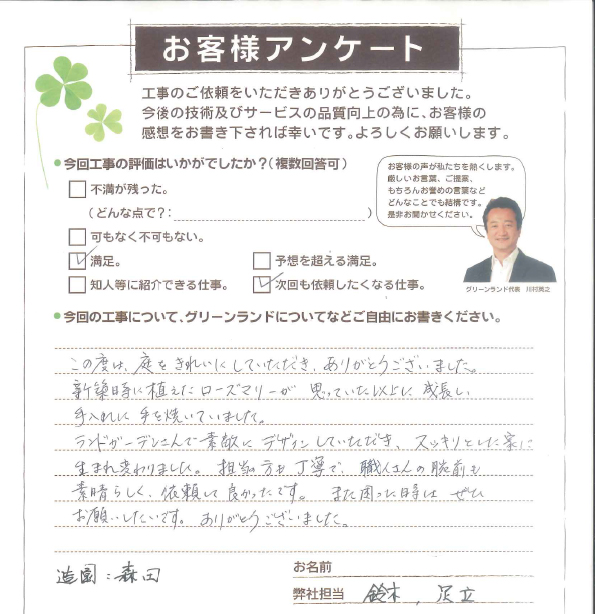 お客様アンケート
工事のご依頼をいただきありがとうございました。
今後の技術及びサービスの品質向上の為に、お客様の
感想をお書き下されば幸いです。よろしくお願いします。
今回工事の評価はいかがでしたか?(複数回答可)
不満が残った。
(どんな点で?:                )
可もなく不可もない。
満足。
予想を超える満足。
知人等に紹介できる仕事。
次回も依頼したくなる仕事。
お客様の声が私たちを熱くします。
厳しいお言葉、ご提案、
もちろんお誉めの言葉など
どんなことでも結構です。
是非お聞かせください。
グリーンランド代表 川村真之
今回の工事について、グリーンランドについてなどご自由にお書きください。
この度は、庭をきれいにしていただき、ありがとうございました。
新築時に植えたローズマリーが 思っていた以上に成長し
手入れに手を焼いていました。
ランドガーデンさんで素敵にデザインしていただき、スッキリとした家に
生まれ変わりました。担当の方も丁寧で、職人さんの腕前も
素晴らしく、依頼して良かったです。また困った時は ぜひ
お願いしたいです。ありがとうございました。
造園:森田
お名前
弊社担当 鈴木、足立